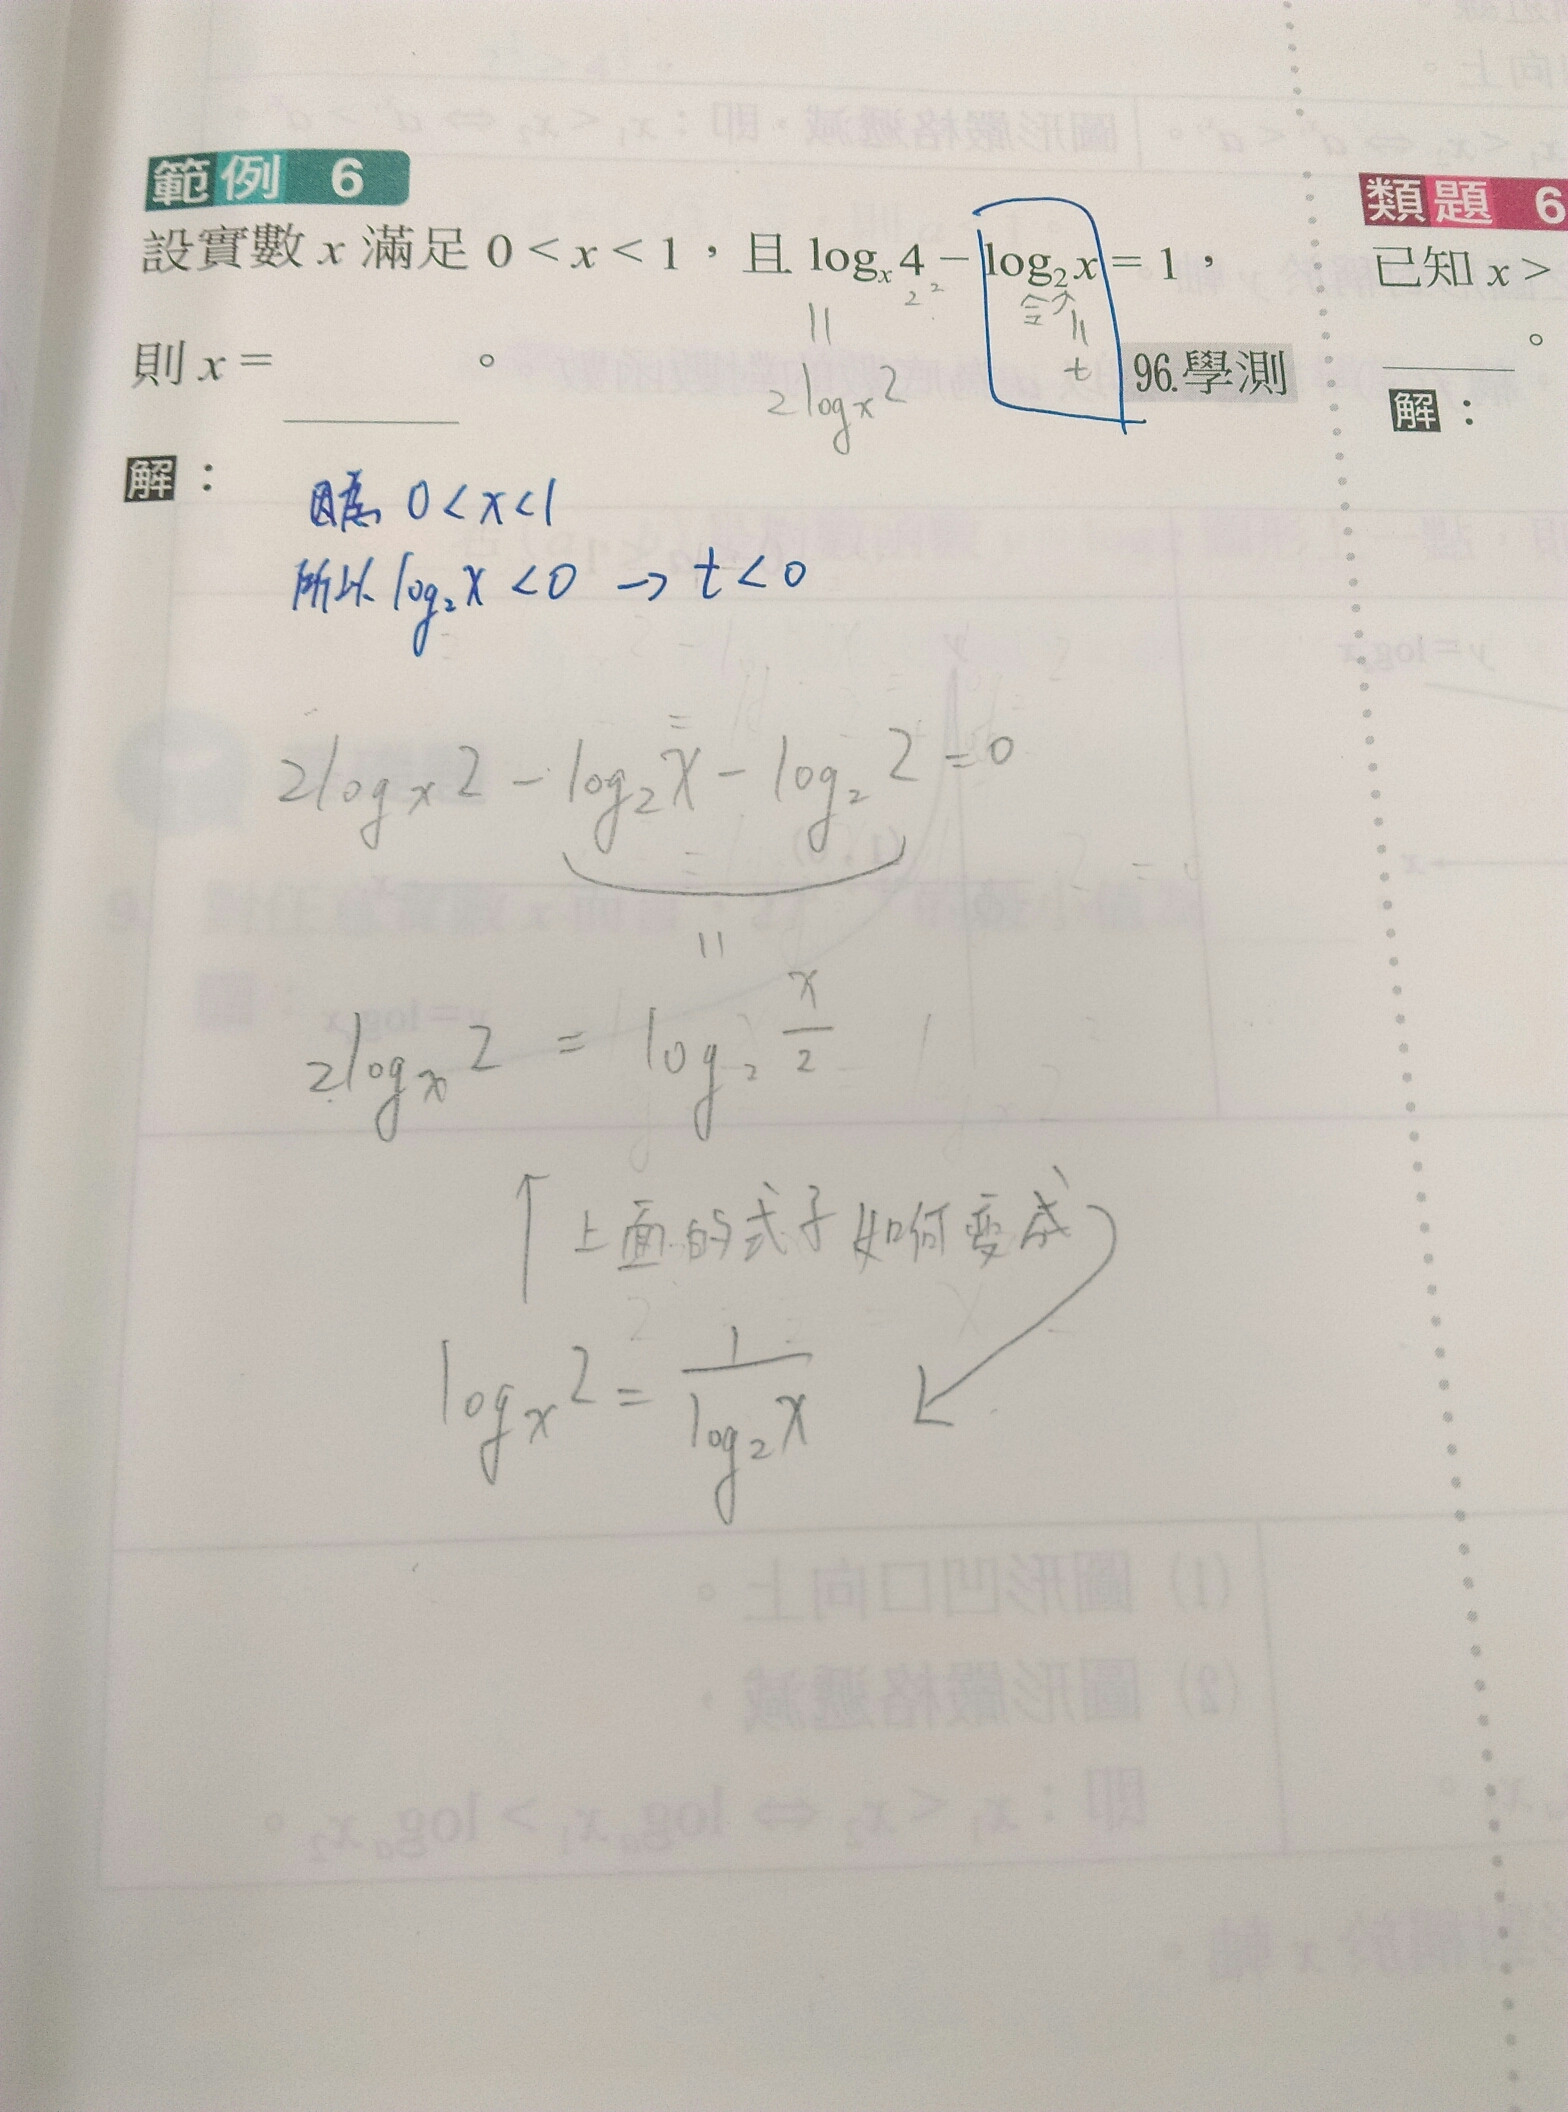 範例 6
設實數 x 滿足 0 < x < 1,且 logₓ4 − log₂x = 1,
2²
令
=
=
t
則 x = ______。
96.學測
2logₓ2
解:
因為 0 < x < 1
所以 log₂x < 0 → t < 0
2logₓ2 − log₂x − log₂2 = 0
=
2logₓ2 = log₂ x/2
↑上面的式子如何变成
logₓ2 = 1/log₂x
類題 6
已知 x >
______。
解: